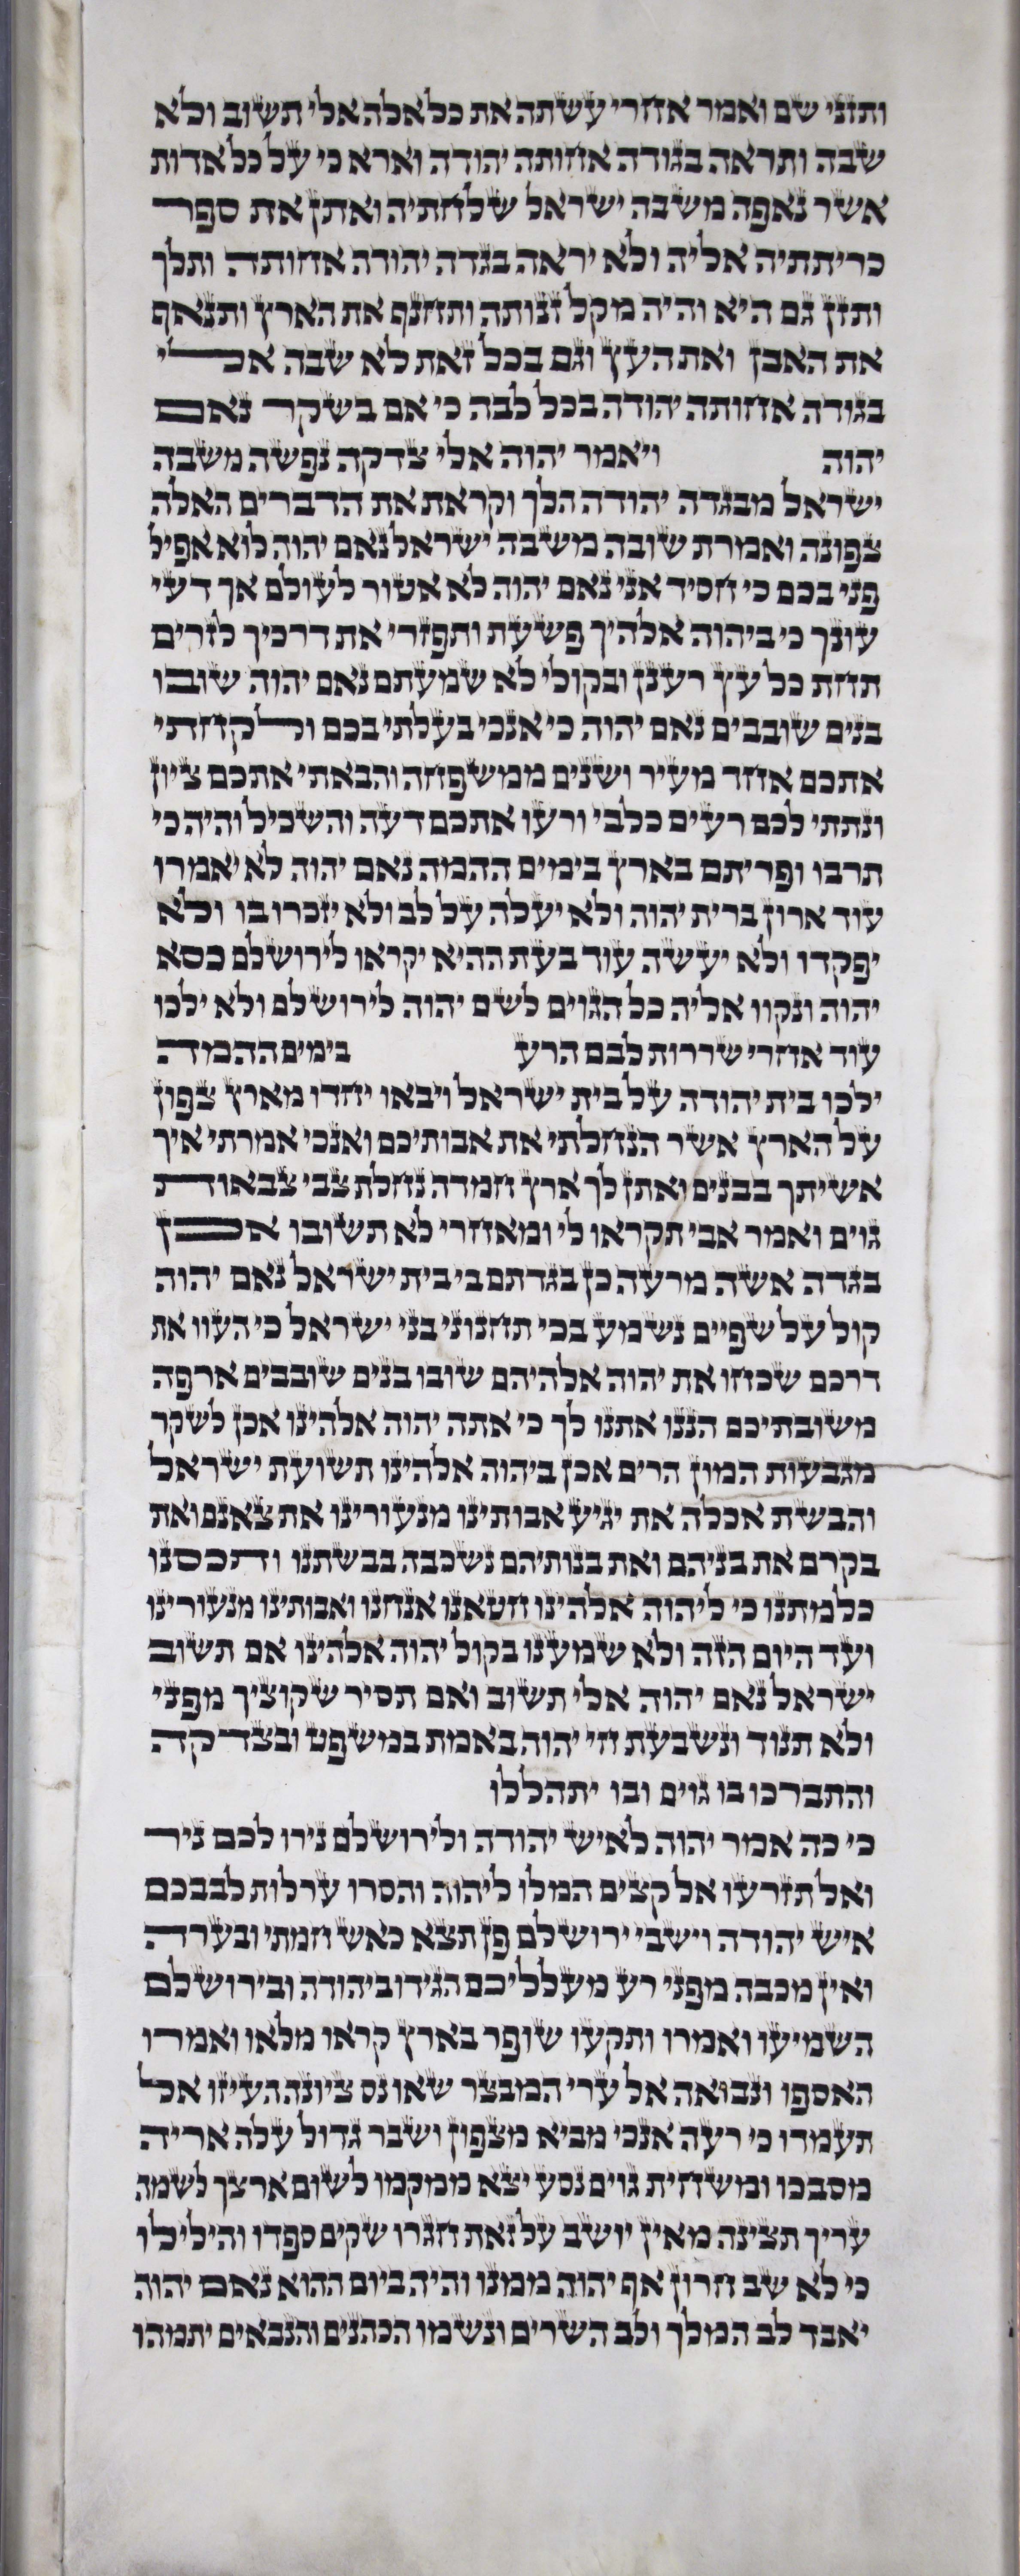 ותזני שם ואמר אחרי עשתה את כל אלה אלי תשוב ולא
שבה ותראה בגודה אחותה יהודה וארא כי על כל אדות
אשר נאפה משבה ישראל שלחתיה ואתן את ספר
כריתתיה אליה ולא יראה בגדה יהודה אחותה ותלך
ותזן גם היא והיה מקל זנותה ותחנף את הארץ ותנאף
את האבן ואת העץ וגם בכל זאת לא שבה אלי
בגודה אחותה יהודה בכל לבה כי אם בשקר נאם
יהוה ויאמר יהוה אלי צדקה נפשה משבה
ישראל מבגדה יהודה הלך וקראת את הדברים האלה
צפונה ואמרת שובה משבה ישראל נאם יהוה לוא אפיל
פני בכם כי חסיד אני נאם יהוה לא אטור לעולם אך דעי
עונך כי ביהוה אלהיך פשעת ותפזרי את דרכיך לזרים
תחת כל עץ רענן ובקולי לא שמעתם נאם יהוה שובו
בנים שובבים נאם יהוה כי אנכי בעלתי בכם ולקחתי
אתכם אחד מעיר ושנים ממשפחה והבאתי אתכם ציון
ונתתי לכם רעים כלבי ורעו אתכם דעה והשכיל והיה כי
תרבו ופריתם בארץ בימים ההמה נאם יהוה לא יאמרו
עוד ארון ברית יהוה ולא יעלה על לב ולא יזכרו בו ולא
יפקדו ולא יעשה עוד בעת ההיא יקראו לירושלם כסא
יהוה ונקוו אליה כל הגוים לשם יהוה לירושלם ולא ילכו
עוד אחרי שררות לבם הרע בימים ההמה
ילכו בית יהודה על בית ישראל ויבאו יחדו מארץ צפון
על הארץ אשר הנחלתי את אבותיכם ואנכי אמרתי איך
אשיתך בבנים ואתן לך ארץ חמדה נחלת צבי צבאות
גוים ואמר אבי תקראו לי ומאחרי לא תשובו אכן
בגדה אשה מרעה כן בגדתם בי בית ישראל נאם יהוה
קול על שפיים נשמע בכי תחנוני בני ישראל כי העוו את
דרכם שכחו את יהוה אלהיהם שובו בנים שובבים ארפה
משובתיכם הננו אתנו לך כי אתה יהוה אלהינו אכן לשקר
מגבעות המון הרים אכן ביהוה אלהינו תשועת ישראל
והבשת אכלה את יגיע אבותינו מנעורינו את צאנם ואת
בקרם את בניהם ואת בנותיהם נשכבה בבשתנו ותכסנו
כלמתנו כי ליהוה אלהינו חטאנו אנחנו ואבותינו מנעורינו
ועד היום הזה ולא שמענו בקול יהוה אלהינו אם תשוב
ישראל נאם יהוה אלי תשוב ואם תסיר שקוציך מפני
ולא תנוד ונשבעת חי יהוה באמת במשפט ובצדקה
והתברכו בו גוים ובו יתהללו
כי כה אמר יהוה לאיש יהודה ולירושלם נירו לכם ניר
ואל תזרעו אל קצים המלו ליהוה והסרו ערלות לבבכם
איש יהודה וישבי ירושלם פן תצא כאש חמתי ובערה
ואין מכבה מפני רע מעלליכם הגידו ביהודה ובירושלם
השמיעו ואמרו ותקעו שופר בארץ קראו מלאו ואמרו
האספו ונבואה אל ערי המבצר שאו נס ציונה העיזו אל
תעמדו כי רעה אנכי מביא מצפון ושבר גדול עלה אריה
מסבכו ומשחית גוים נסע יצא ממקמו לשום ארצך לשמה
עריך תצינה מאין יושב על זאת חגרו שקים ספדו והילילו
כי לא שב חרון אף יהוה ממנו והיה ביום ההוא נאם יהוה
יאבד לב המלך ולב השרים ונשמו הכהנים והנבאים יתמהו